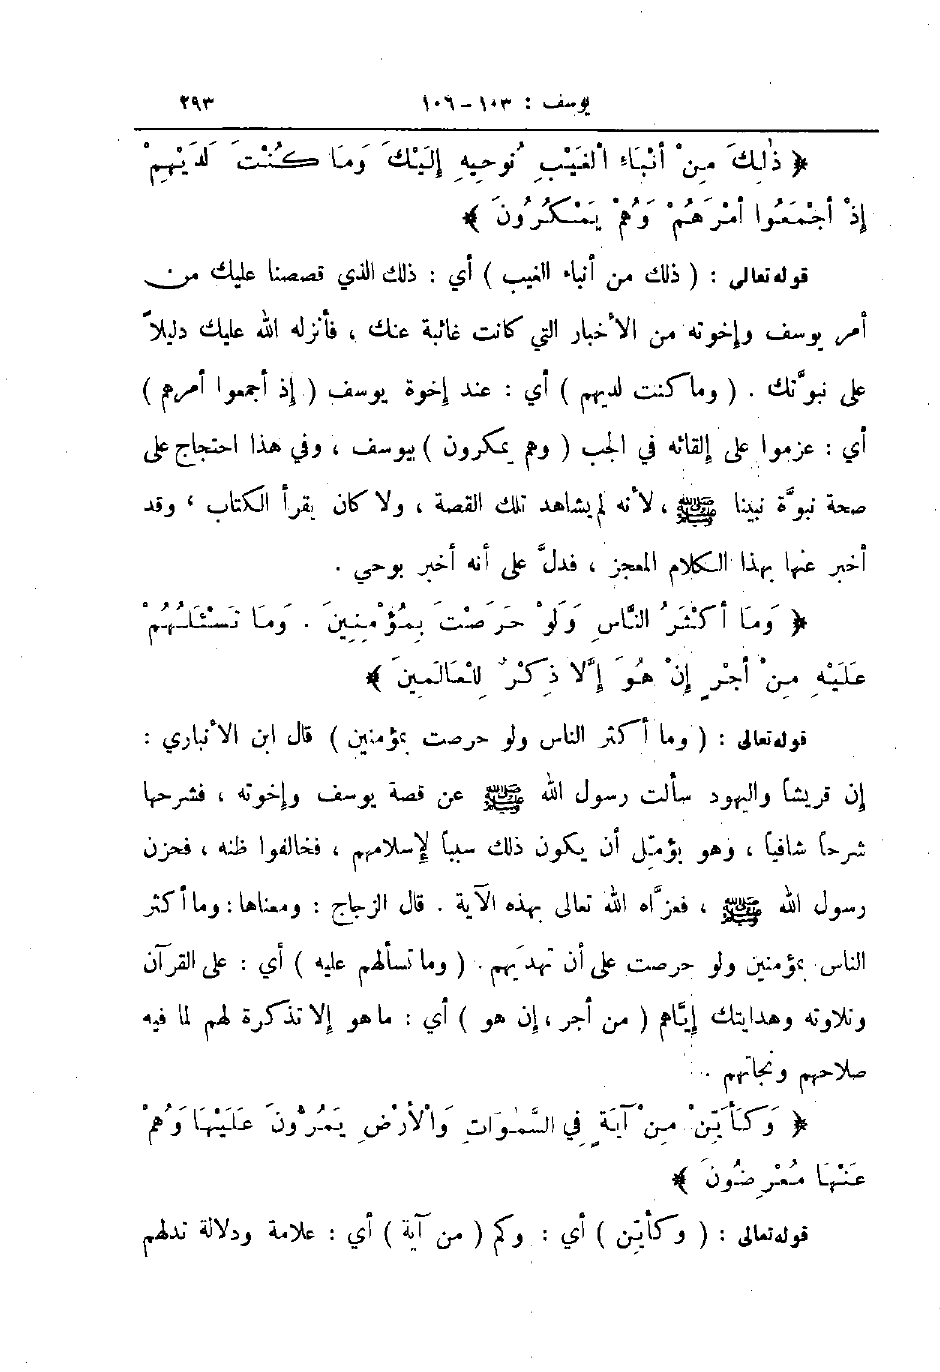 يوسف : ١٠٣ – ١٠٦ ٢٩٣
﴿ ذٰلِكَ مِنْ أَنْبَاءِ الْغَيْبِ نُوحِيهِ إِلَيْكَ وَمَا كُنْتَ لَدَيْهِمْ
إِذْ أَجْمَعُوا أَمْرَهُمْ وَهُمْ يَمْكُرُونَ ﴾
قوله تعالى : ( ذلك من أنباء الغيب ) أي : ذلك الذي قصصنا عليك من
أمر يوسف وإخوته من الأخبار التي كانت غائبة عنك ، فأنزله الله عليك دليلاً
على نبوَّتك . ( وما كنت لديهم ) أي : عند إخوة يوسف ( إذ أجمعوا أمرهم )
أي : عزموا على إلقائه في الجب ( وهم يمكرون ) بيوسف ، وفي هذا احتجاج على
صحة نبوَّة نبينا ﷺ ، لأنه لم يشاهد تلك القصة ، ولا كان يقرأ الكتاب ، وقد
أخبر عنها بهذا الكلام المعجز ، فدلَّ على أنه أخبر بوحي .
﴿ وَمَا أَكْثَرُ النَّاسِ وَلَوْ حَرَصْتَ بِمُؤْمِنِينَ . وَمَا تَسْئَلُهُمْ
عَلَيْهِ مِنْ أَجْرٍ إِنْ هُوَ إِلَّا ذِكْرٌ لِلْعَالَمِينَ ﴾
قوله تعالى : ( وما أكثر الناس ولو حرصت بمؤمنين ) قال ابن الأنباري :
إن قريشاً واليهود سألت رسول الله ﷺ عن قصة يوسف وإخوته ، فشرحها
شرحاً شافياً ، وهو يؤمِّل أن يكون ذلك سبباً لإسلامهم ، فخالفوا ظنه ، فحزن
رسول الله ﷺ ، فعزَّاه الله تعالى بهذه الآية . قال الزجاج : ومعناها : وما أكثر
الناس بمؤمنين ولو حرصت على أن تهديَهم . ( وما تسألهم عليه ) أي : على القرآن
وتلاوته وهدايتك إيَّاهم ( من أجر ، إن هو ) أي : ما هو إلا تذكرة لهم لما فيه
صلاحهم ونجاتهم .
﴿ وَكَأَيِّنْ مِنْ آيَةٍ فِي السَّمٰوَاتِ وَالْأَرْضِ يَمُرُّونَ عَلَيْهَا وَهُمْ
عَنْهَا مُعْرِضُونَ ﴾
قوله تعالى : ( وكأيِّن ) أي : وكم ( من آية ) أي : علامة ودلالة تدلهم